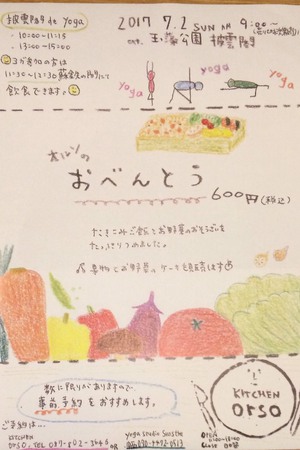 披雲閣 de yoga
・10:00-11:15
・13:00-15:00
ヨガ参加の方は
11:30-12:30 蘇鉄の間にて
飲食できます。
2017 7.2 SUN AM 9:00~
at 玉藻公園 披雲閣
yoga
yoga
yoga
オルソの
おべんとう
600円(税込)
たきこみご飯とお野菜のおそうざいを
たっぷりつめました。
果物とお野菜のケーキも販売します
数に限りがありますので、
事前予約をおすすめします。
ご予約は...
KITCHEN
orso. TEL 087-802-3646 OR
yoga studio Sunste
KITCHEN
orso
OPEN
11:00-18:00
Close